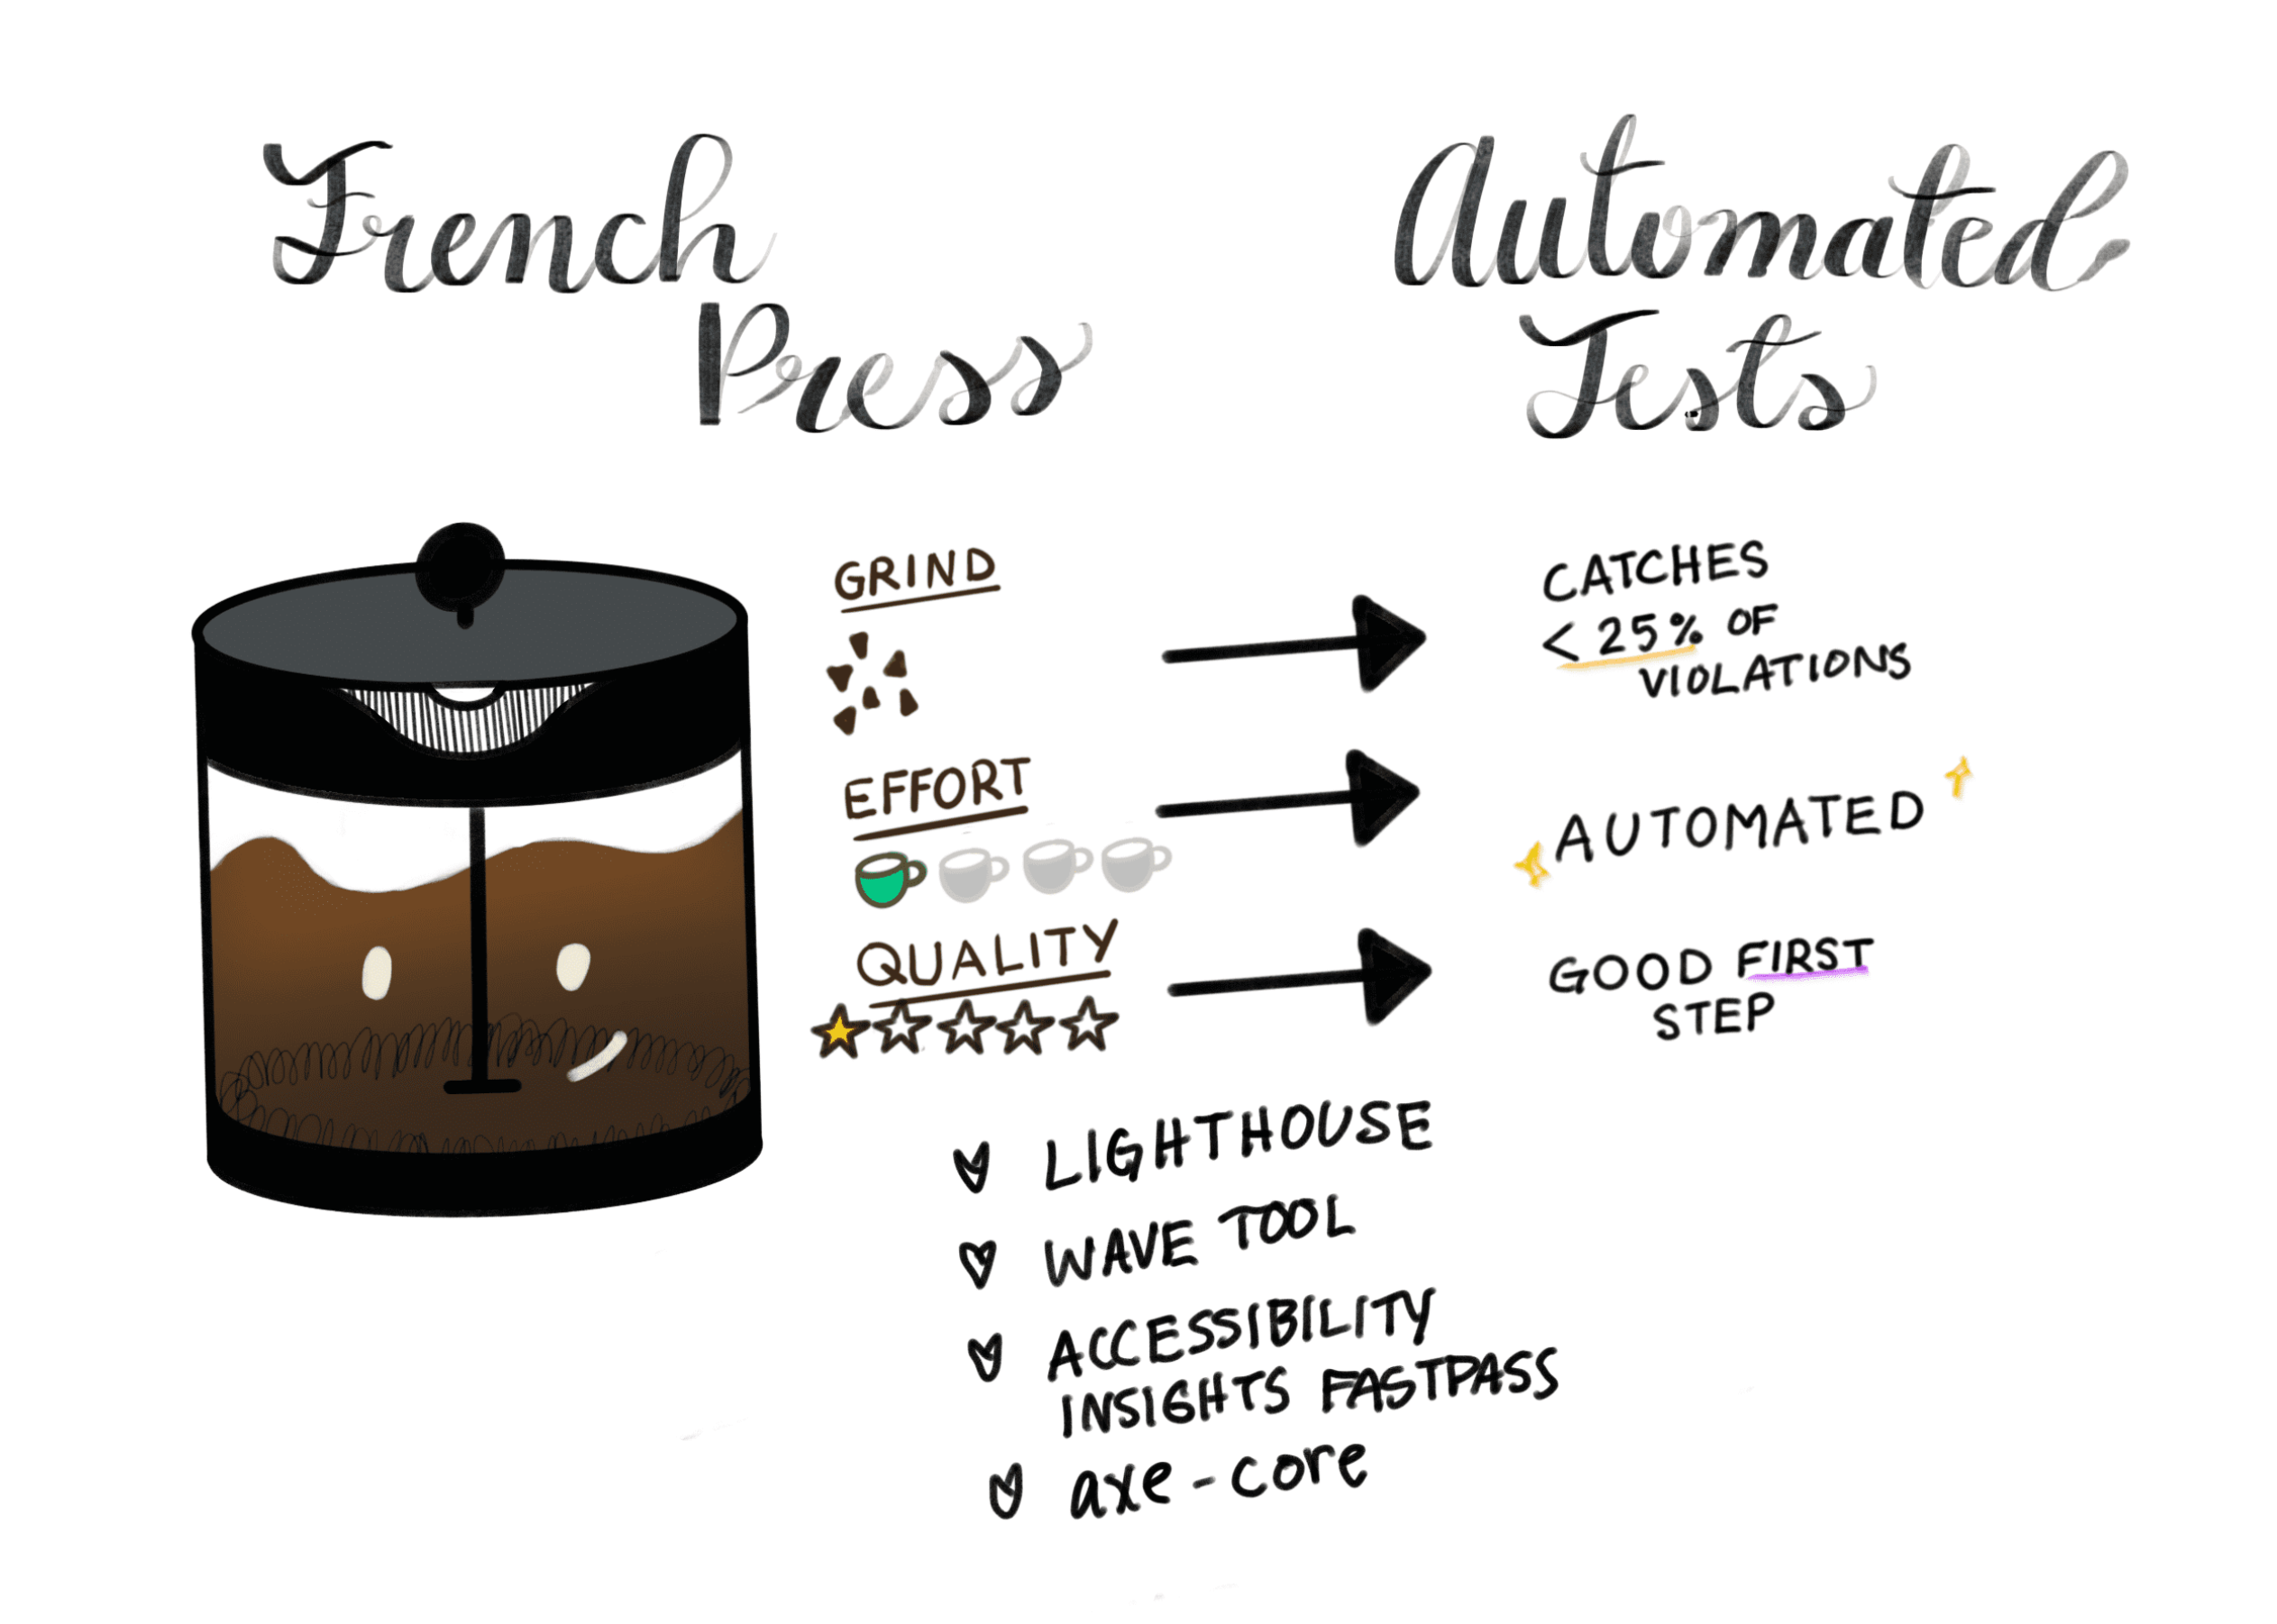 French
Press
Automated
Tests
GRIND
CATCHES
< 25% OF
VIOLATIONS
EFFORT
AUTOMATED
QUALITY
GOOD FIRST
STEP
LIGHTHOUSE
WAVE TOOL
ACCESSIBILITY
INSIGHTS FASTPASS
axe-core